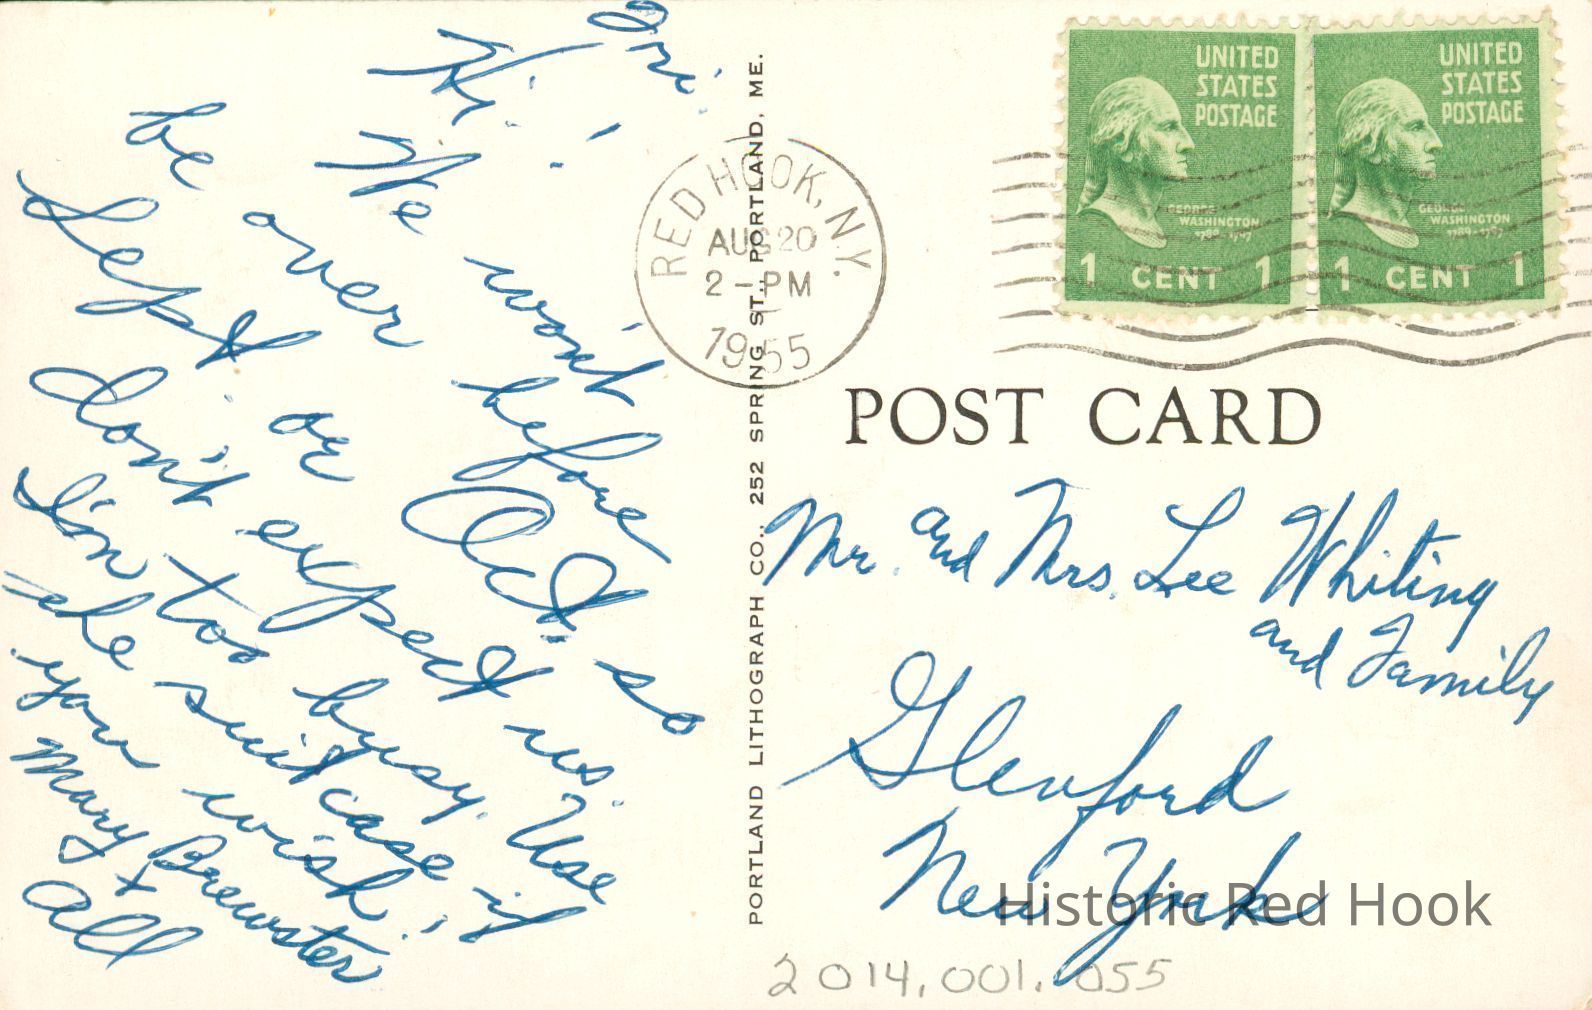 Fri.
Hi!
We won't
be over before
Sept or Oct. so
don't expect us.
I'm too busy. Use
the suit case if
you wish!
Mary Brewster
+ All
PORTLAND LITHOGRAPH CO., 252 SPRING ST., PORTLAND, ME.
RED HOOK, N.Y.
AUG 20
2 - PM
1955
UNITED STATES POSTAGE
GEORGE WASHINGTON
1789-1797
1 CENT 1
UNITED STATES POSTAGE
GEORGE WASHINGTON
1789-1797
1 CENT 1
POST CARD
Mr. and Mrs. Lee Whiting
and Family
Glenford
New York
Historic Red Hook
2014.001.055